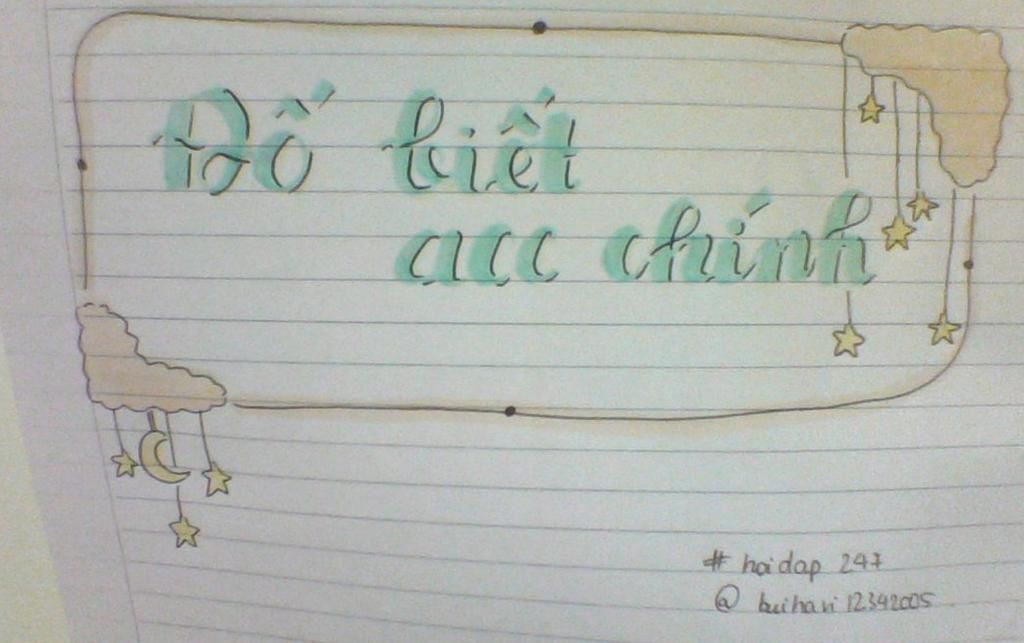 Đố biết
acc chính
# hoidap 247
@ buihavi12342005